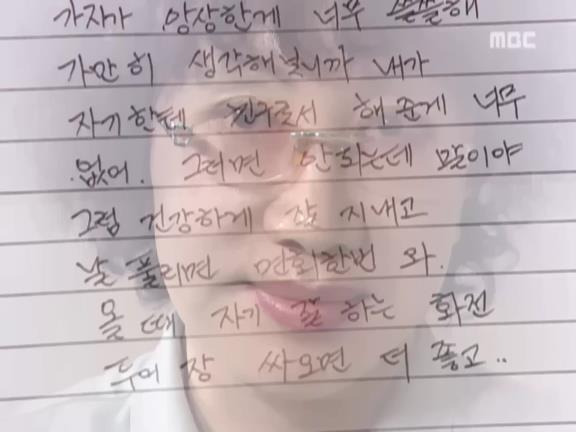 가지가 앙상한게 너무 쓸쓸해
MBC
가만히 생각해보니까 내가
자기한테 친구로서 해준게 너무
없어. 그러면 안되는데 말이야
그럼 건강하게 잘 지내고
날 풀리면 면회한번 와.
올 때 자기 잘 하는 화전
두어 장 싸오면 더 좋고..